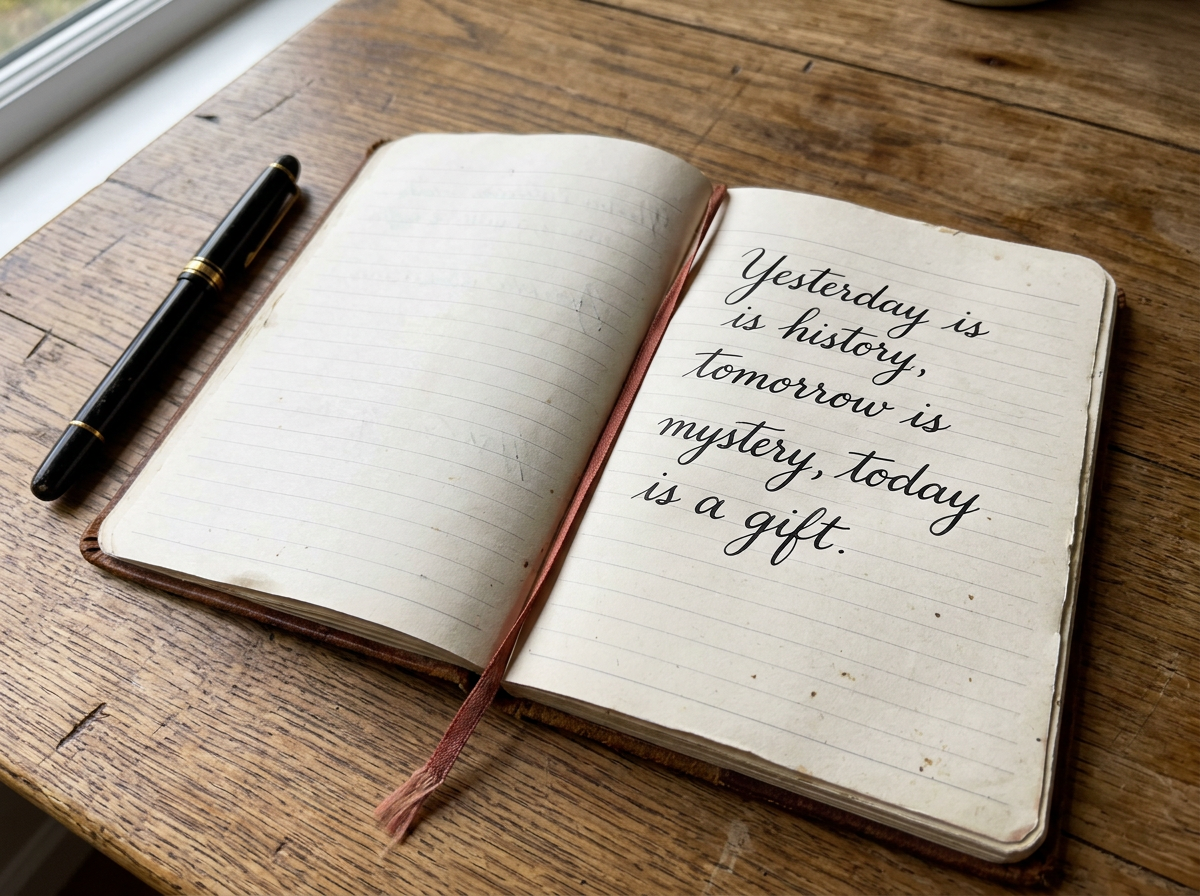 Yesterday is
is history,
tomorrow is
mystery, today
is a gift.